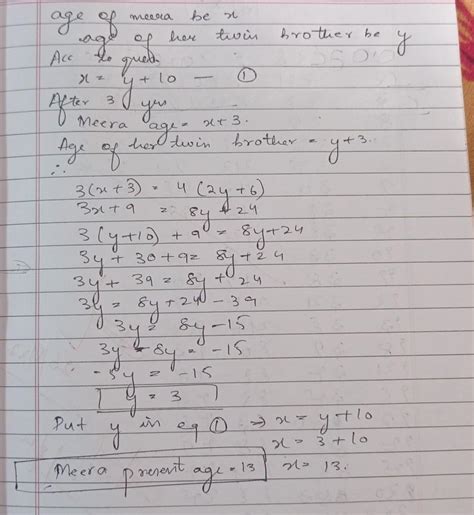 age of meera be x
age of her twin brother be y
Acc to ques.
x = y+10 — ①
After 3 yrs
Meera age = x+3.
Age of her twin brother = y+3.
∴
3(x+3) = 4(2y+6)
3x+9 = 8y+24
3(y+10) + 9 = 8y+24
3y + 30 + 9 = 8y+24
3y + 39 = 8y + 24.
3y = 8y+24-39
3y = 8y-15
3y - 8y = -15
-5y = -15
y = 3
Put y in eq ① ⇒ x = y+10
x = 3+10
Meera present age = 13
x = 13.